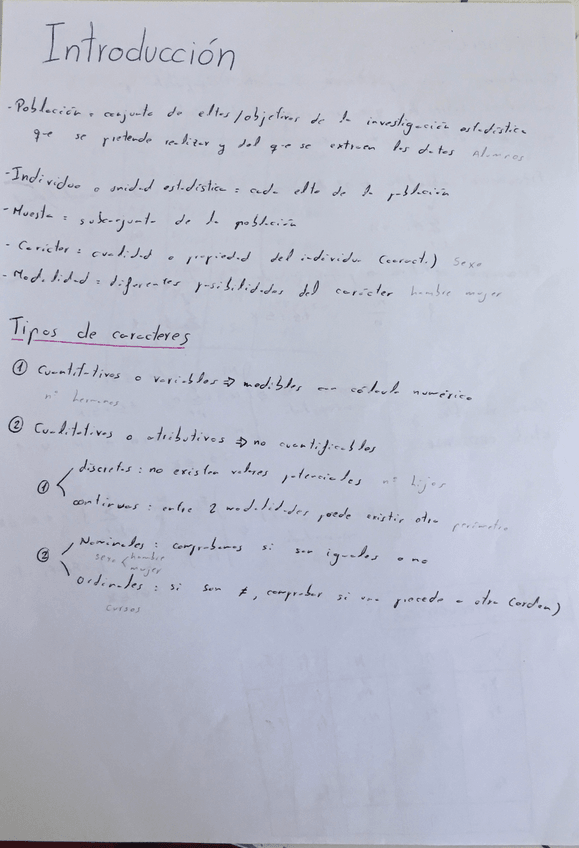 Introducción
- Población = conjunto de eltos/objetivos de la investigación estadística
que se pretende realizar y del que se extraen los datos Alumnos
- Individuo o unidad estadística = cada elto de la población
- Muestra = subconjunto de la población
- Carácter = cualidad o propiedad del individuo (caract.) Sexo
- Modalidad = diferentes posibilidades del carácter hombre mujer
Tipos de caracteres
① Cuantitativos o variables ⇒ medibles con cálculo numérico
nº hermanos
② Cualitativos o atributivos ⇒ no cuantificables
discretas : no existen valores potenciales nº hijos
①
continuas : entre 2 modalidades puede existir otra perímetro
Nominales : comprobamos si son iguales o no
sexo < hombre
mujer
②
Ordinales : si son ≠, comprobar si una precede a otra (orden)
cursos